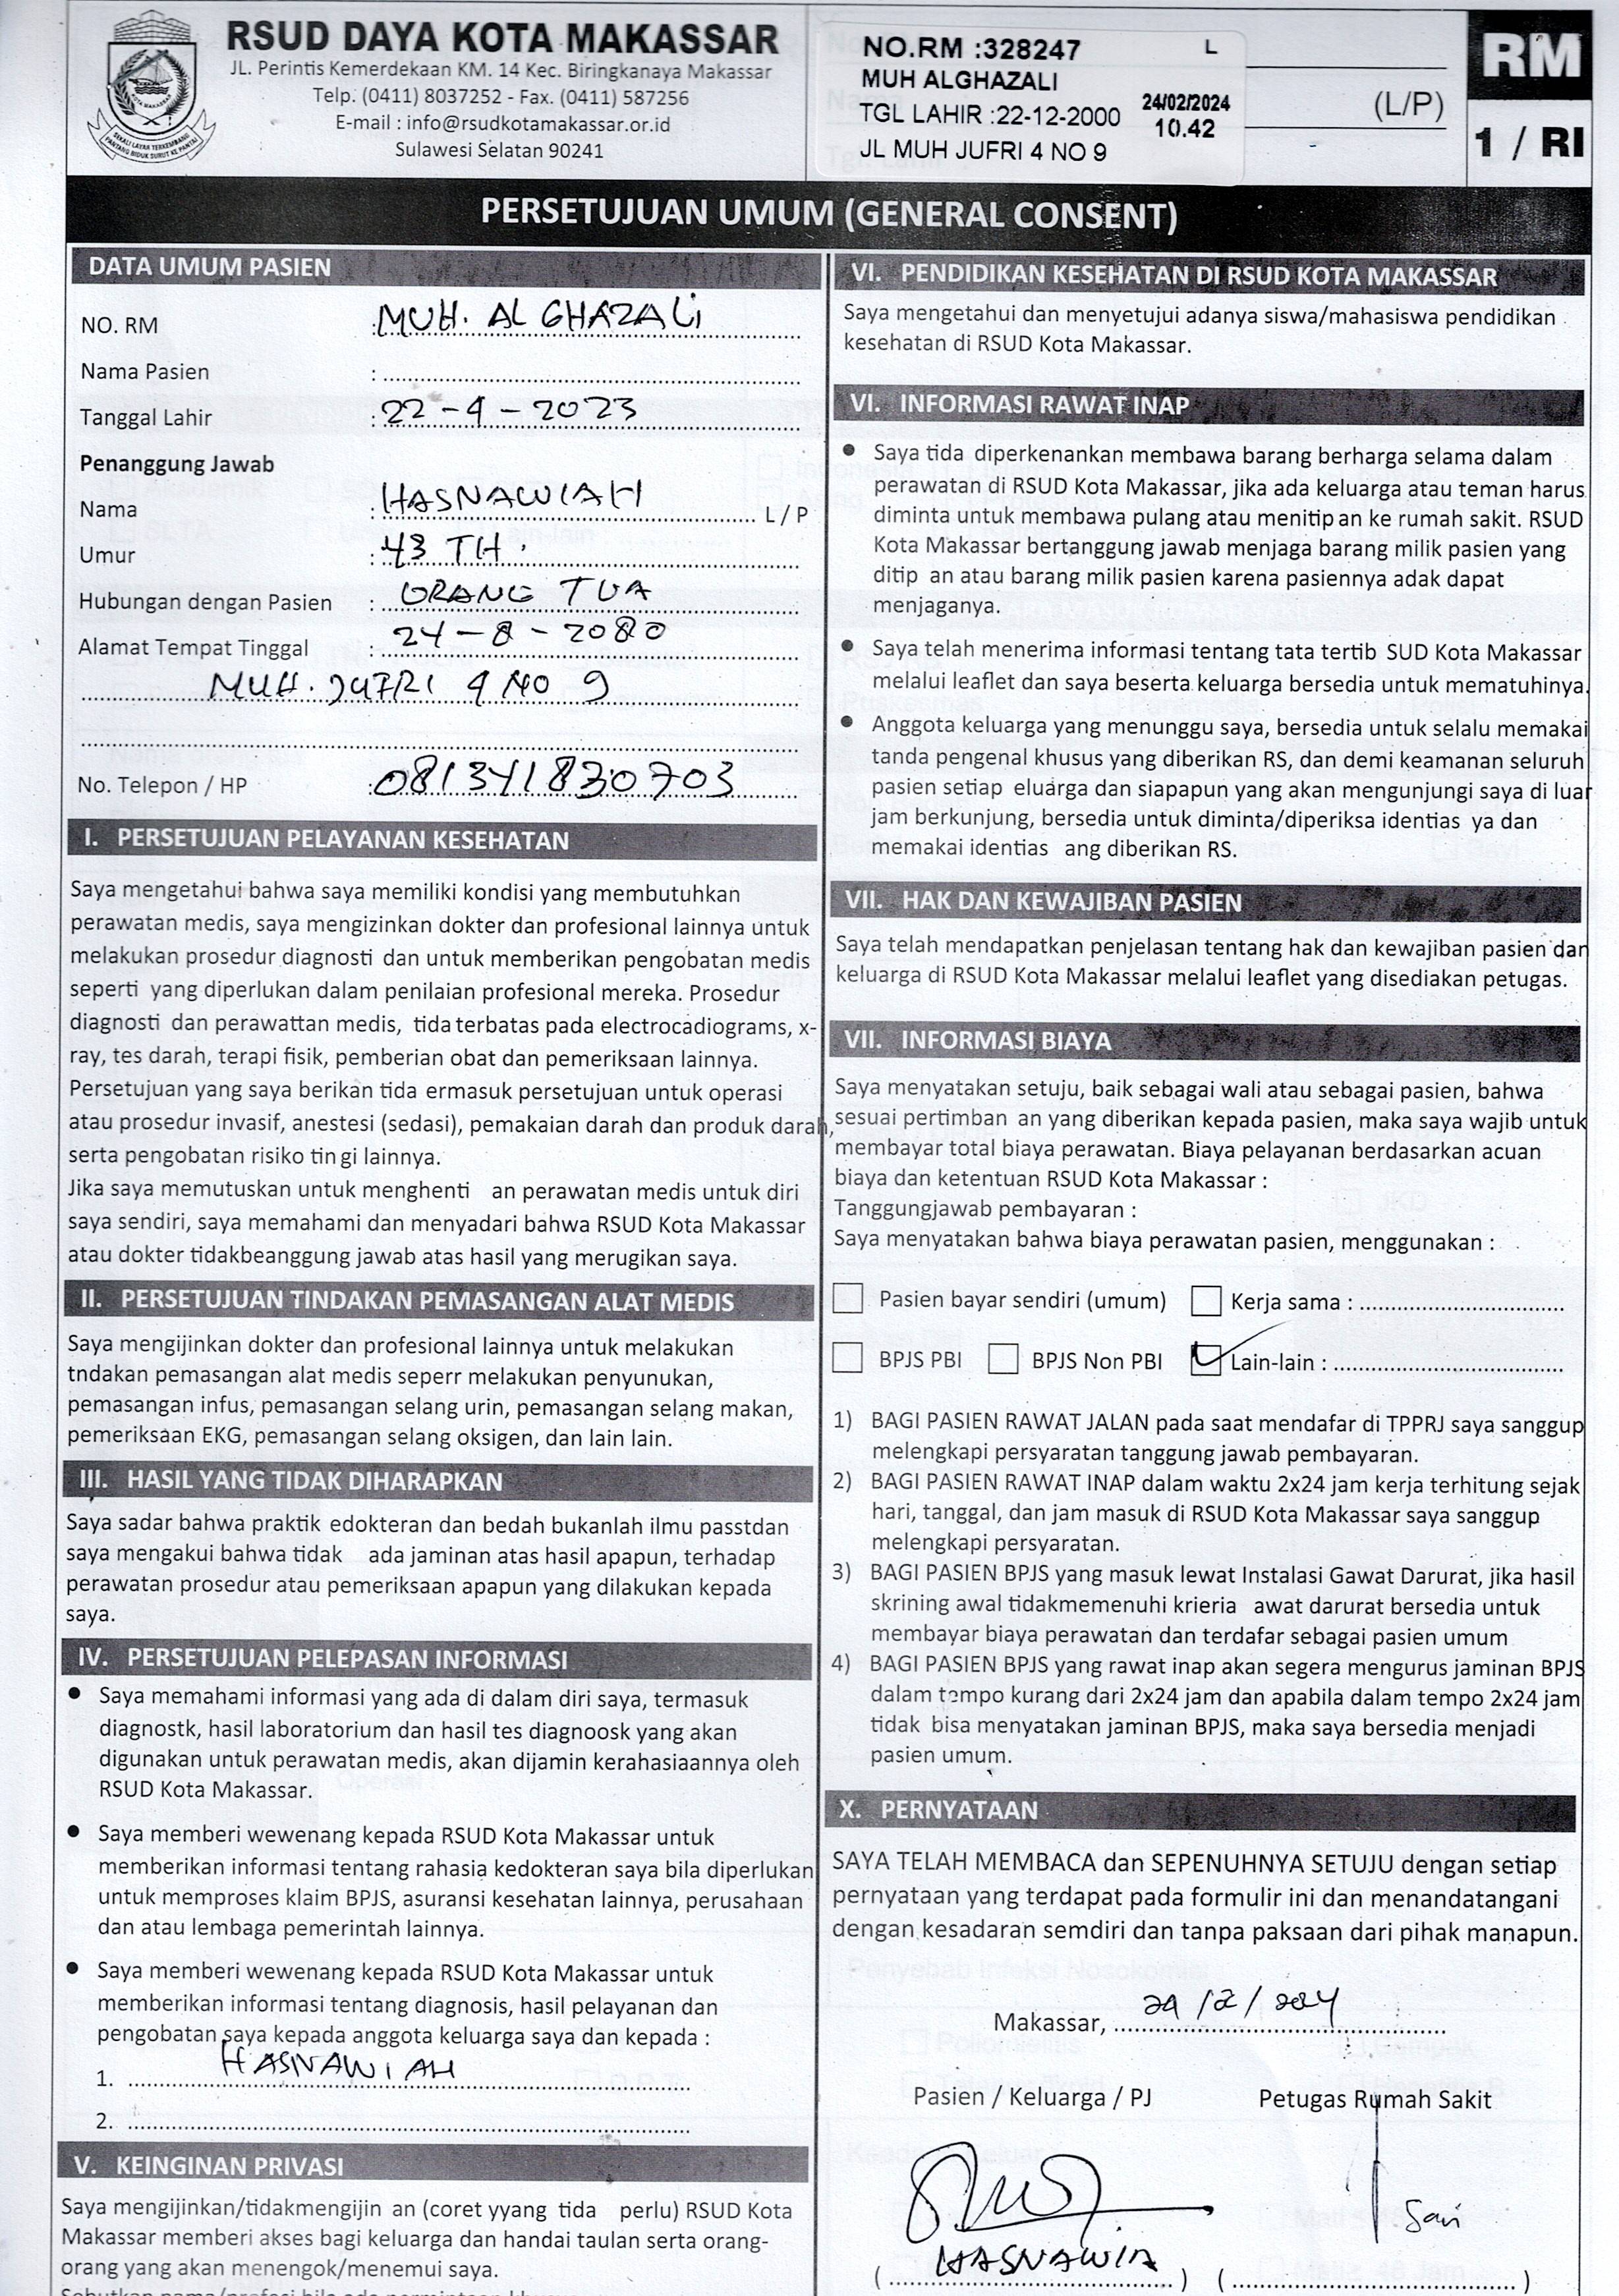 RSUD DAYA KOTA MAKASSAR
JL. Perintis Kemerdekaan KM. 14 Kec. Biringkanaya Makassar
Telp. (0411) 8037252 - Fax. (0411) 587256
E-mail : info@rsudkotamakassar.or.id
Sulawesi Selatan 90241
NO.RM :328247 L
MUH ALGHAZALI
TGL LAHIR :22-12-2000 24/02/2024
10.42
JL MUH JUFRI 4 NO 9
(L/P)
RM
1 / RI
PERSETUJUAN UMUM (GENERAL CONSENT)
DATA UMUM PASIEN
NO. RM : MUH. AL GHAZALI
Nama Pasien :
Tanggal Lahir : 22-4-2023
Penanggung Jawab
Nama : HASNAWIAH L / P
Umur : 43 TH.
Hubungan dengan Pasien : ORANG TUA
Alamat Tempat Tinggal : 24-8-2080
MUH. JUFRI 4 NO 9
No. Telepon / HP : 081341830703
I. PERSETUJUAN PELAYANAN KESEHATAN
Saya mengetahui bahwa saya memiliki kondisi yang membutuhkan
perawatan medis, saya mengizinkan dokter dan profesional lainnya untuk
melakukan prosedur diagnosti dan untuk memberikan pengobatan medis
seperti yang diperlukan dalam penilaian profesional mereka. Prosedur
diagnosti dan perawattan medis, tida terbatas pada electrocadiograms, x-
ray, tes darah, terapi fisik, pemberian obat dan pemeriksaan lainnya.
Persetujuan yang saya berikan tida ermasuk persetujuan untuk operasi
atau prosedur invasif, anestesi (sedasi), pemakaian darah dan produk darah,
serta pengobatan risiko tin gi lainnya.
Jika saya memutuskan untuk menghenti an perawatan medis untuk diri
saya sendiri, saya memahami dan menyadari bahwa RSUD Kota Makassar
atau dokter tidakbeanggung jawab atas hasil yang merugikan saya.
II. PERSETUJUAN TINDAKAN PEMASANGAN ALAT MEDIS
Saya mengijinkan dokter dan profesional lainnya untuk melakukan
tndakan pemasangan alat medis seperr melakukan penyunukan,
pemasangan infus, pemasangan selang urin, pemasangan selang makan,
pemeriksaan EKG, pemasangan selang oksigen, dan lain lain.
III. HASIL YANG TIDAK DIHARAPKAN
Saya sadar bahwa praktik edokteran dan bedah bukanlah ilmu passtdan
saya mengakui bahwa tidak ada jaminan atas hasil apapun, terhadap
perawatan prosedur atau pemeriksaan apapun yang dilakukan kepada
saya.
IV. PERSETUJUAN PELEPASAN INFORMASI
● Saya memahami informasi yang ada di dalam diri saya, termasuk
diagnostk, hasil laboratorium dan hasil tes diagnoosk yang akan
digunakan untuk perawatan medis, akan dijamin kerahasiaannya oleh
RSUD Kota Makassar.
● Saya memberi wewenang kepada RSUD Kota Makassar untuk
memberikan informasi tentang rahasia kedokteran saya bila diperlukan
untuk memproses klaim BPJS, asuransi kesehatan lainnya, perusahaan
dan atau lembaga pemerintah lainnya.
● Saya memberi wewenang kepada RSUD Kota Makassar untuk
memberikan informasi tentang diagnosis, hasil pelayanan dan
pengobatan saya kepada anggota keluarga saya dan kepada :
1. HASNAWIAH
2.
V. KEINGINAN PRIVASI
Saya mengijinkan/tidakmengijin an (coret yyang tida perlu) RSUD Kota
Makassar memberi akses bagi keluarga dan handai taulan serta orang-
orang yang akan menengok/menemui saya.
VI. PENDIDIKAN KESEHATAN DI RSUD KOTA MAKASSAR
Saya mengetahui dan menyetujui adanya siswa/mahasiswa pendidikan
kesehatan di RSUD Kota Makassar.
VI. INFORMASI RAWAT INAP
● Saya tida diperkenankan membawa barang berharga selama dalam
perawatan di RSUD Kota Makassar, jika ada keluarga atau teman harus
diminta untuk membawa pulang atau menitip an ke rumah sakit. RSUD
Kota Makassar bertanggung jawab menjaga barang milik pasien yang
ditip an atau barang milik pasien karena pasiennya adak dapat
menjaganya.
● Saya telah menerima informasi tentang tata tertib SUD Kota Makassar
melalui leaflet dan saya beserta keluarga bersedia untuk mematuhinya.
● Anggota keluarga yang menunggu saya, bersedia untuk selalu memakai
tanda pengenal khusus yang diberikan RS, dan demi keamanan seluruh
pasien setiap eluarga dan siapapun yang akan mengunjungi saya di luar
jam berkunjung, bersedia untuk diminta/diperiksa identias ya dan
memakai identias ang diberikan RS.
VII. HAK DAN KEWAJIBAN PASIEN
Saya telah mendapatkan penjelasan tentang hak dan kewajiban pasien dan
keluarga di RSUD Kota Makassar melalui leaflet yang disediakan petugas.
VII. INFORMASI BIAYA
Saya menyatakan setuju, baik sebagai wali atau sebagai pasien, bahwa
sesuai pertimban an yang diberikan kepada pasien, maka saya wajib untuk
membayar total biaya perawatan. Biaya pelayanan berdasarkan acuan
biaya dan ketentuan RSUD Kota Makassar :
Tanggungjawab pembayaran :
Saya menyatakan bahwa biaya perawatan pasien, menggunakan :
Pasien bayar sendiri (umum) Kerja sama :
BPJS PBI BPJS Non PBI Lain-lain :
1) BAGI PASIEN RAWAT JALAN pada saat mendafar di TPPRJ saya sanggup
melengkapi persyaratan tanggung jawab pembayaran.
2) BAGI PASIEN RAWAT INAP dalam waktu 2x24 jam kerja terhitung sejak
hari, tanggal, dan jam masuk di RSUD Kota Makassar saya sanggup
melengkapi persyaratan.
3) BAGI PASIEN BPJS yang masuk lewat Instalasi Gawat Darurat, jika hasil
skrining awal tidakmemenuhi krieria awat darurat bersedia untuk
membayar biaya perawatan dan terdafar sebagai pasien umum
4) BAGI PASIEN BPJS yang rawat inap akan segera mengurus jaminan BPJS
dalam tempo kurang dari 2x24 jam dan apabila dalam tempo 2x24 jam
tidak bisa menyatakan jaminan BPJS, maka saya bersedia menjadi
pasien umum.
X. PERNYATAAN
SAYA TELAH MEMBACA dan SEPENUHNYA SETUJU dengan setiap
pernyataan yang terdapat pada formulir ini dan menandatangani
dengan kesadaran semdiri dan tanpa paksaan dari pihak manapun.
Makassar, 24/2/2024
Pasien / Keluarga / PJ Petugas Rumah Sakit
Sari
( HASNAWIA ) ( )